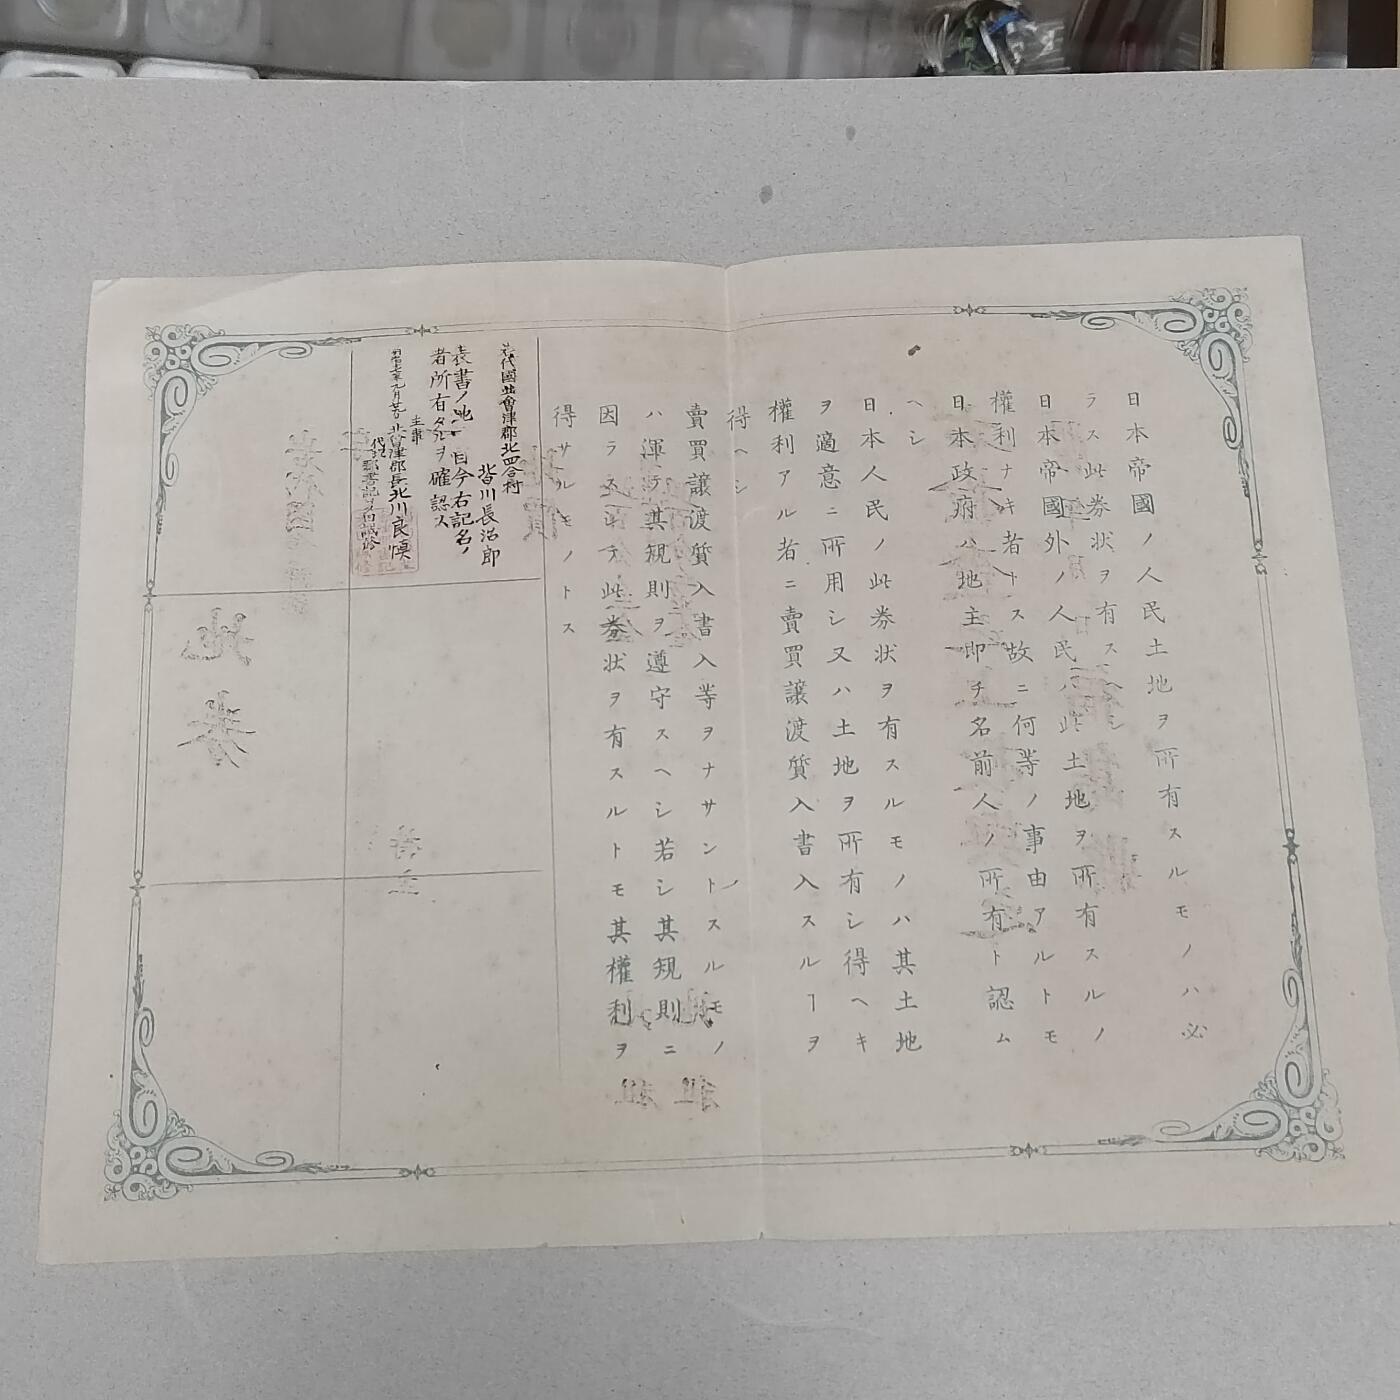 日本帝國ノ人民土地ヲ所有スルモノハ必
ラス此券状ヲ有スヘシ
日本帝國外ノ人民ハ此土地ヲ所有スルノ
權利ナキ者トス故ニ何等ノ事由アルトモ
日本政府ハ地主即チ名前人ノ所有ト認ム
ヘシ
日本人民ノ此券状ヲ有スルモノハ其土地
ヲ適意ニ所用シ又ハ土地ヲ所有シ得ヘキ
權利アル者ニ賣買讓渡質入書入スルヿヲ
得ヘシ
賣買讓渡質入書入等ヲナサントスルモノ
ハ渾テ其規則ヲ遵守スヘシ若シ其規則ニ
因ラスシテ此券状ヲ有スルトモ其權利ヲ
得サルモノトス
岩代國北會津郡北四合村
皆川長治郎
表書ノ地自今右記名ノ
者所有タルヲ確認ス
主事
北會津郡長北川良慎
代理郡書記
地券